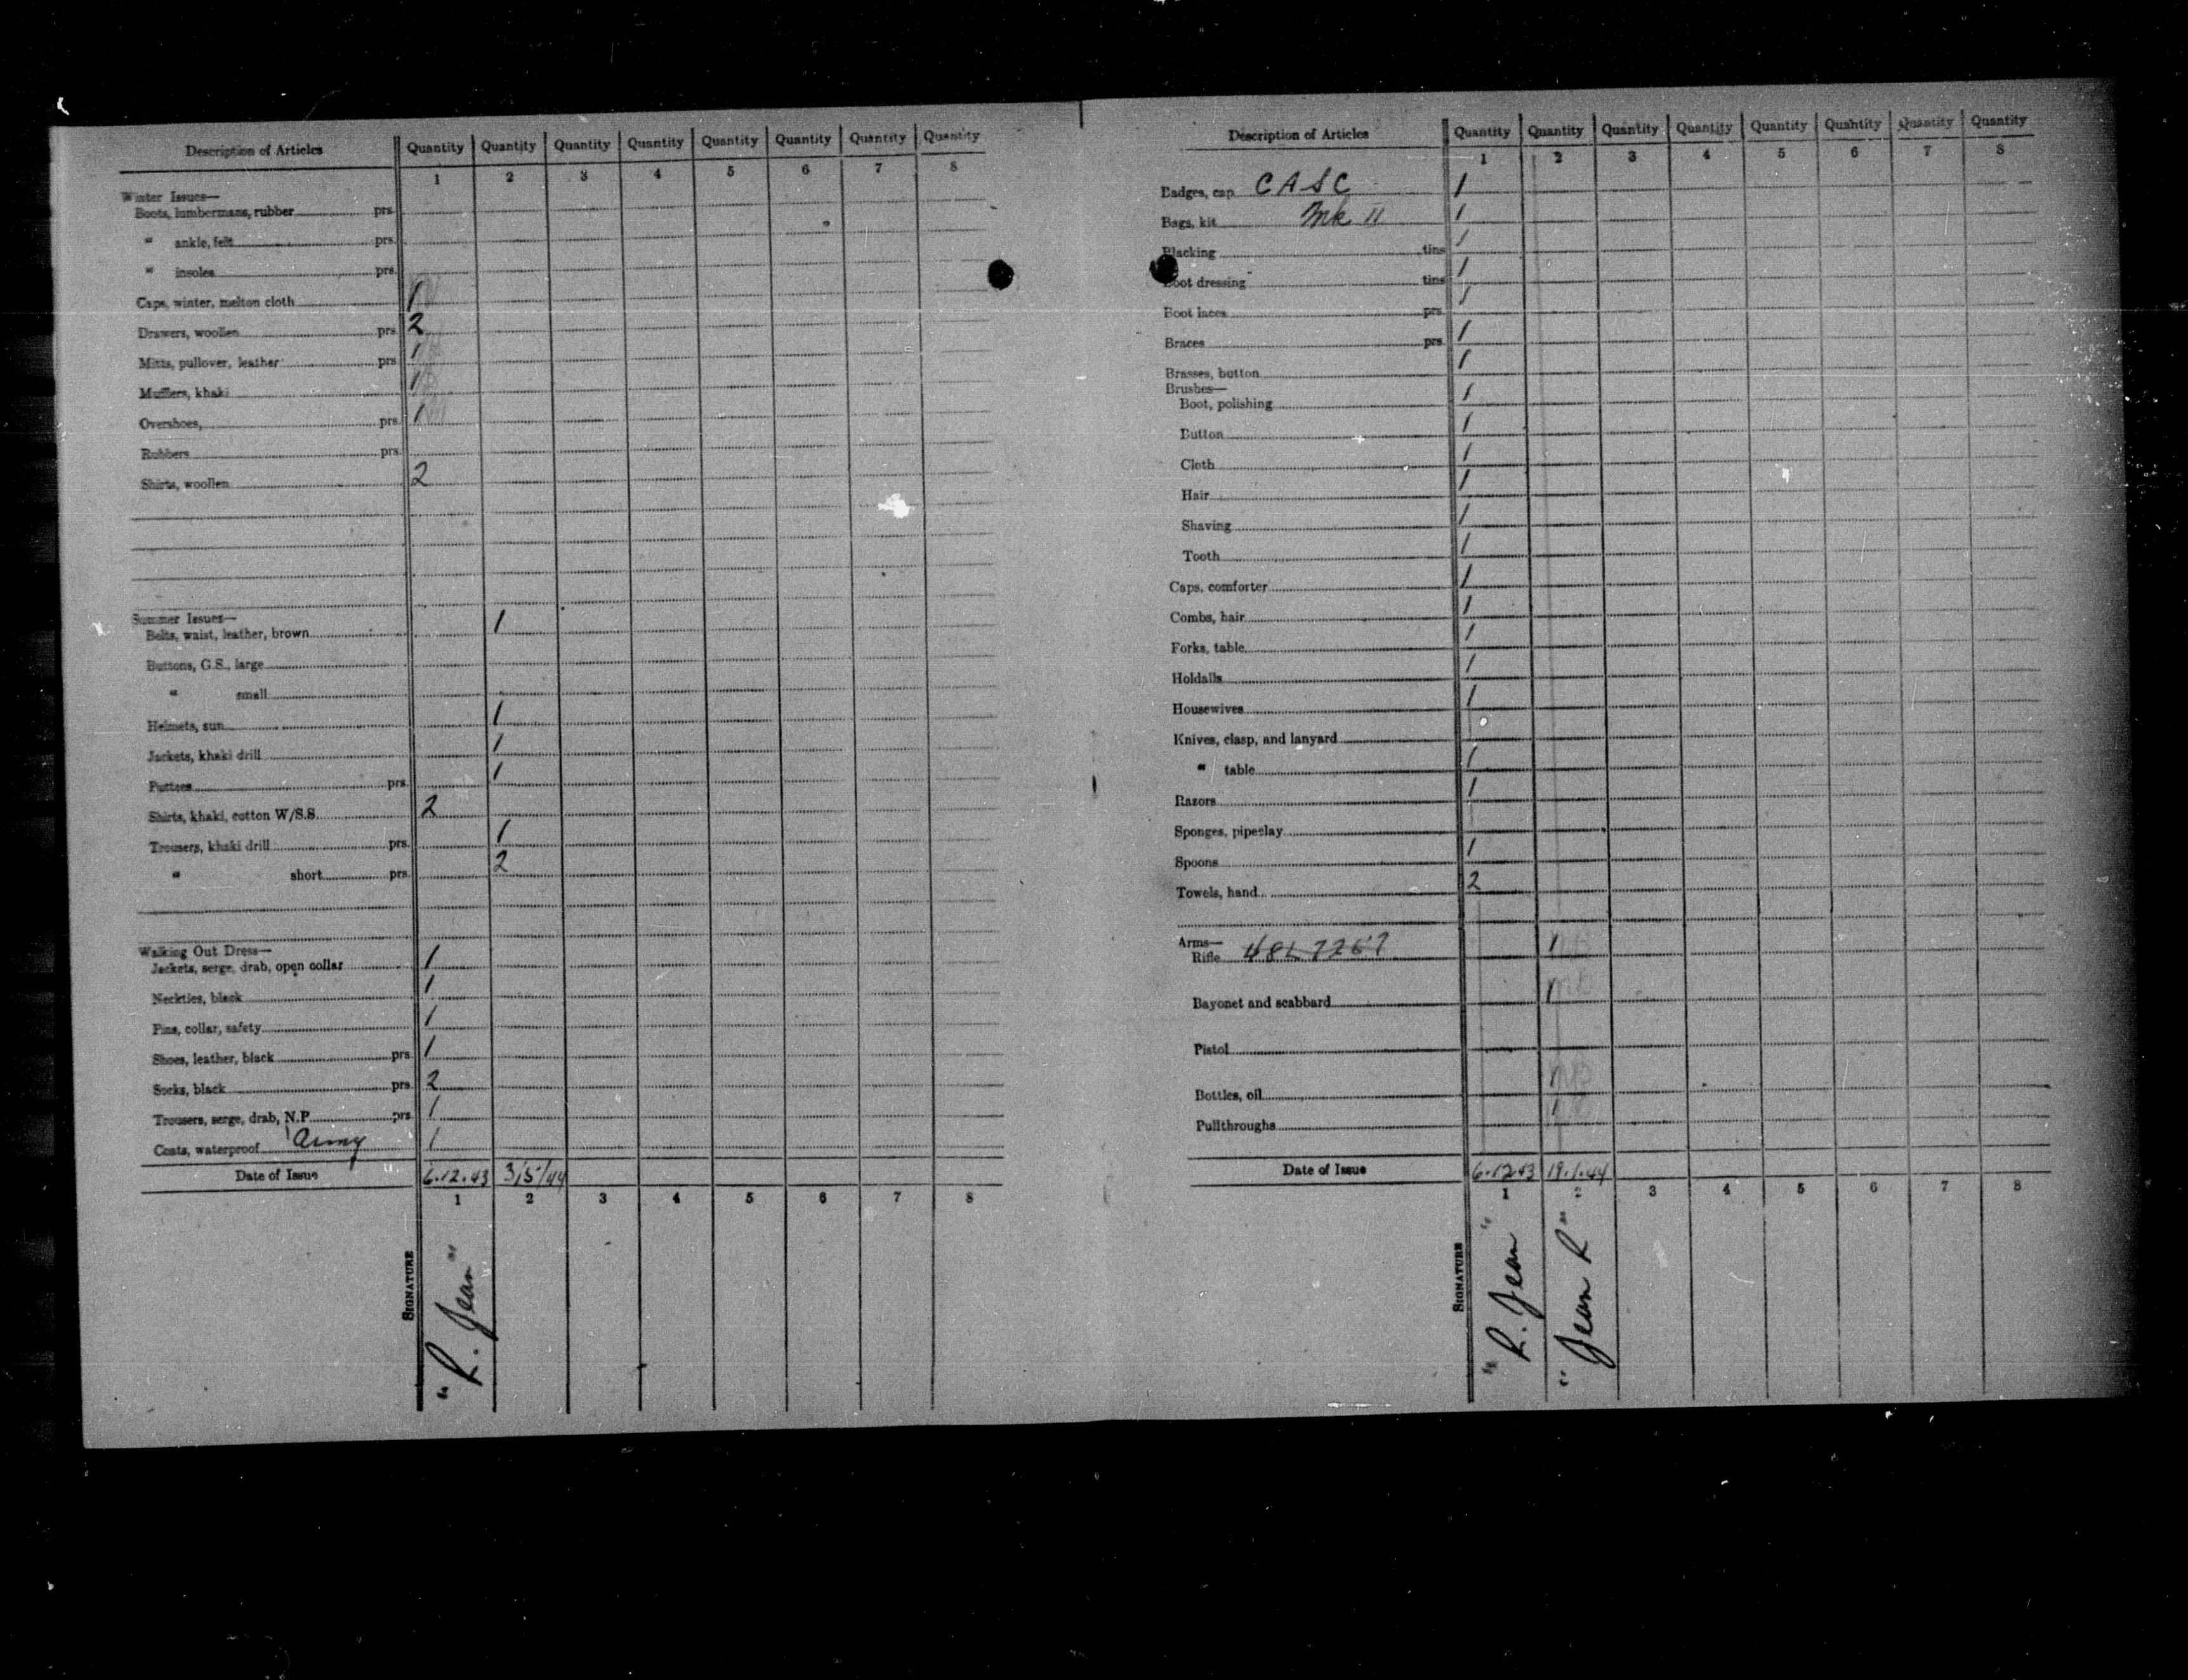 Description of Articles Quantity Quantity Quantity Quantity Quantity Quantity Quantity Quantity
1 2 3 4 5 6 7 8
Winter Issues—
Boots, lumbermans, rubber prs.
" ankle, felt prs.
" insoles prs.
Caps, winter, melton cloth 1
Drawers, woollen prs. 2
Mitts, pullover, leather prs. 1
Mufflers, khaki 1
Overshoes, prs. 1
Rubbers prs.
Shirts, woollen 2
Summer Issues—
Belts, waist, leather, brown 1
Buttons, G.S., large
" small
Helmets, sun 1
Jackets, khaki drill 1
Puttees prs. 1
Shirts, khaki, cotton W/S.S. 2
Trousers, khaki drill prs. 1
" short prs. 2
Walking Out Dress—
Jackets, serge, drab, open collar 1
Neckties, black 1
Pins, collar, safety 1
Shoes, leather, black prs. 1
Socks, black prs. 2
Trousers, serge, drab, N.P. prs. 1
Coats, waterproof Army 1
Date of Issue 6.12.43 3/5/44
1 2 3 4 5 6 7 8
SIGNATURE
"R. Jean"
Description of Articles Quantity Quantity Quantity Quantity Quantity Quantity Quantity Quantity
1 2 3 4 5 6 7 8
Badges, cap CASC 1
Bags, kit Mk II 1
Blacking tins 1
Boot dressing tins 1
Boot laces prs. 1
Braces prs. 1
Brasses, button 1
Brushes—
Boot, polishing 1
Button 1
Cloth 1
Hair 1
Shaving 1
Tooth 1
Caps, comforter 1
Combs, hair 1
Forks, table 1
Holdalls 1
Housewives 1
Knives, clasp, and lanyard
" table 1
Razors 1
Sponges, pipeclay
Spoons 1
Towels, hand 2
Arms—
Rifle 1
Bayonet and scabbard 1
Pistol
Bottles, oil 1
Pullthroughs 1
Date of Issue 6.12.43 19.1.44
1 2 3 4 5 6 7 8
SIGNATURE
"R. Jean"
"Jean R"